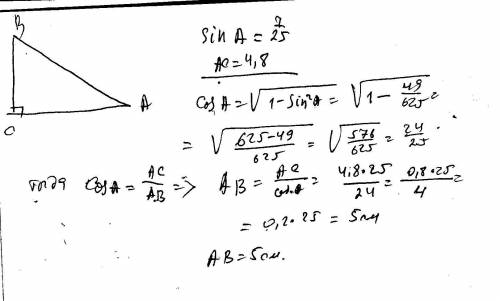 B
A
C
Sin A = 7/25
AC = 4,8
Cos A = √(1 - Sin²A) = √(1 - 49/625) =
= √((625-49)/625) = √(576/625) = 24/25
тогда Cos A = AC/AB => AB = AC/cos A = (4,8·25)/24 = (0,8·25)/4 =
= 0,2·25 = 5см
AB = 5см.